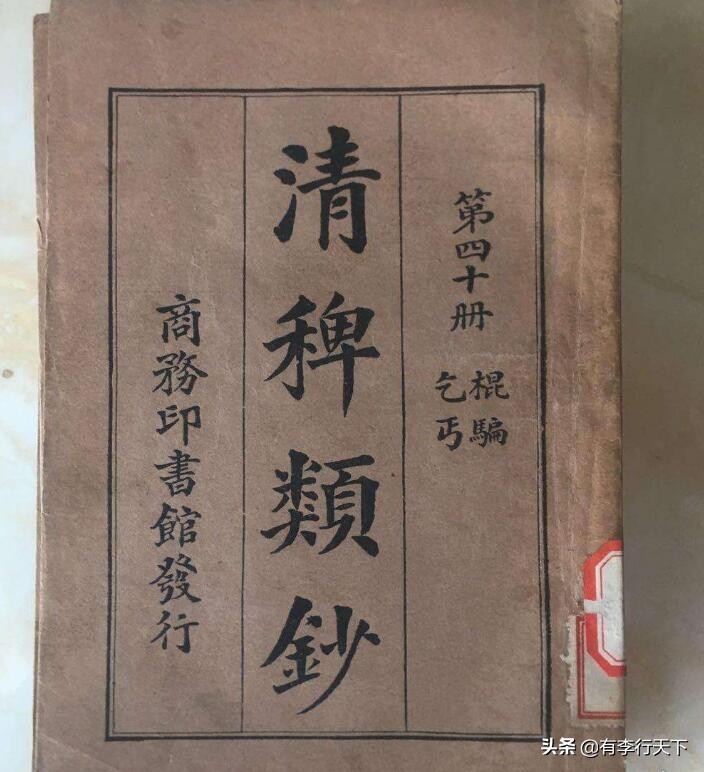 第四十册
棍騙
乞丐
清稗類鈔
商務印書館發行
头条 @有李行天下